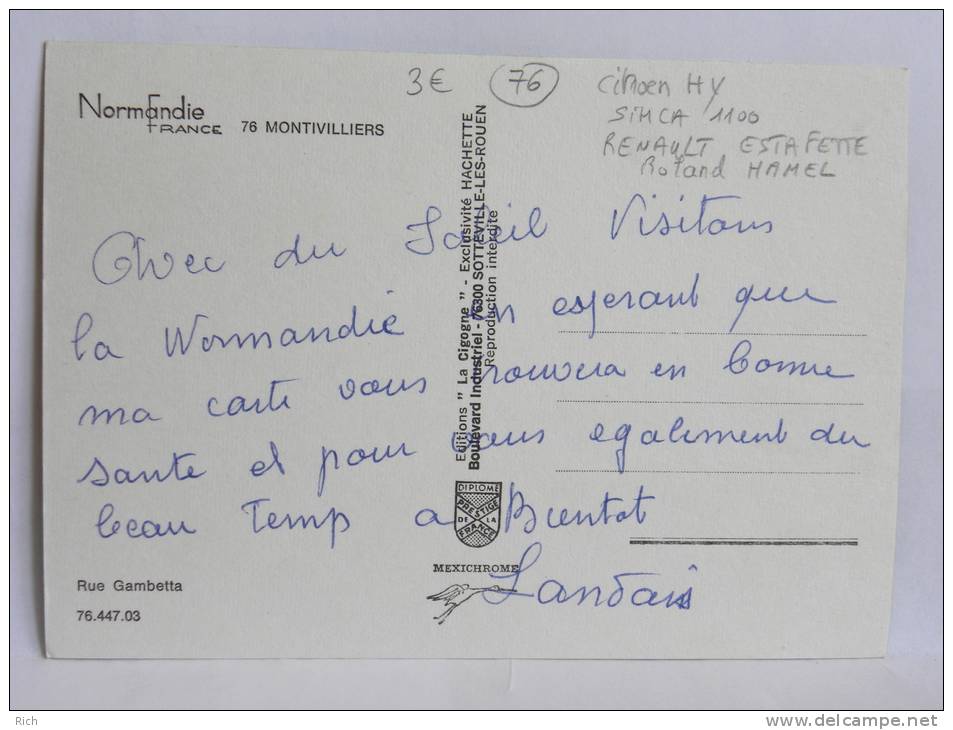 3€ 76
Citroen HY
SIMCA 1100
RENAULT ESTAFETTE
Roland HAMEL
Normandie
FRANCE 76 MONTIVILLIERS
Avec du Soleil Visitons
la Normandie en esperant que
ma carte vous trouvera en bonne
santé et pour vous egalement du
beau Temp a Bientot
Landais
Editions " La Cigogne " - Exclusivité HACHETTE
Boulevard Industriel - 76300 SOTTEVILLE-LES-ROUEN
Reproduction interdite
DIPLOME
PRESTIGE
DE LA
FRANCE
MEXICHROME
Rue Gambetta
76.447.03
Rich
www.delcampe.net